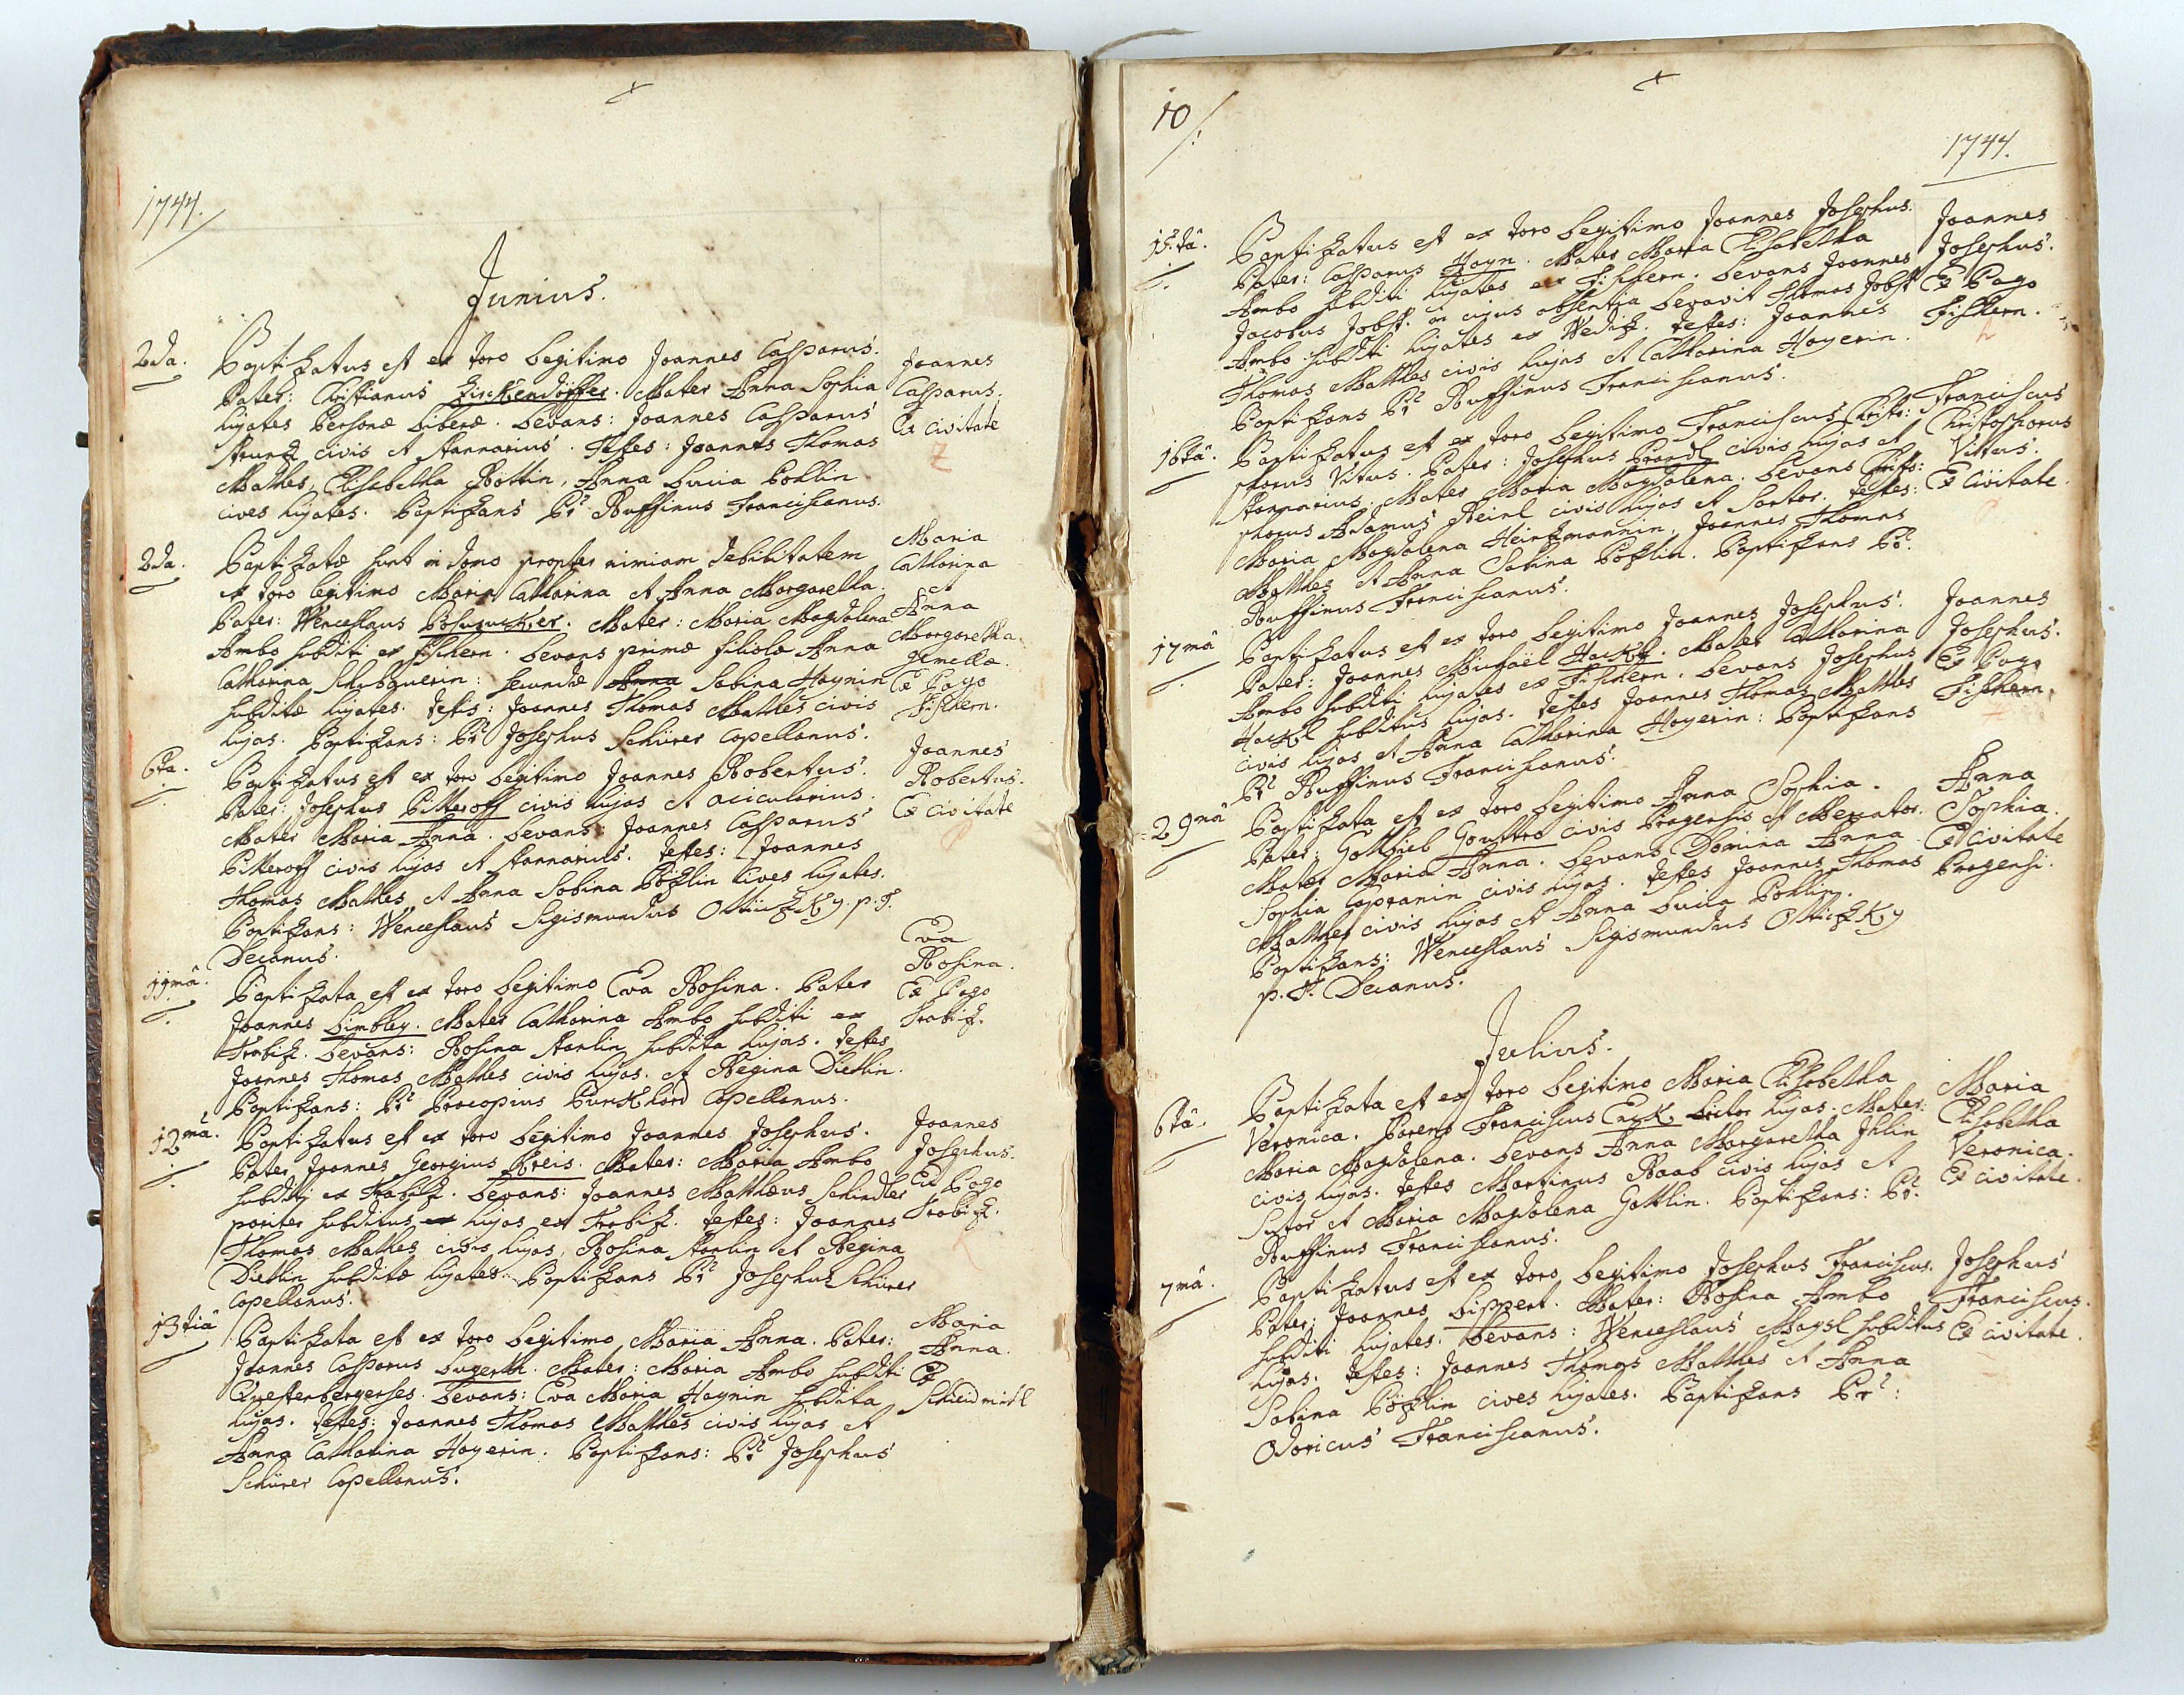 1744.
Junius.
2da.
Baptizatus est ex toro legitimo Joannes Casparus.
Pater: Christianus Zirckendörffer. Mater Anna Sophia
hujates Personæ liberæ. Levans: Joannes Casparus
civis et stannarius. Testes: Joannes Thomas
Mathes, Elisabetha Röttin, Anna Lucia Pohlin
cives hujates. Baptizans Pr Ruffinus Franciscanus.
Joannes
Casparus.
Ex civitate
Z
2da.
Baptizatæ sunt in domo propter nimiam debilitatem
ex toro legitimo Maria Catharina et Anna Margaretha.
Pater: Wenceslaus. Mater: Maria Magdalena
Ambo subditi ex Fischern. Levans primæ filiolæ Anna
Catharina: secundæ Anna Sabina Haynin
subditæ hujates. Testis: Joannes Thomas Mathes civis
hujas. Baptizans: Pr Josephus Schürer Capellanus.
Maria
Catharina
et
Anna
Margaretha
gemellæ.
Ex Pago
Fischern.
6ta.
Baptizatus est ex toro legitimo Joannes Robertus.
Pater: Josephus Pitteroff civis hujas et acicularius.
Mater Maria Anna. Levans: Joannes Casparus
Pitteroff civis hujas et stannarius. Testes: Joannes
Thomas Mathes et Anna Sabina Pözlin cives hujates.
Baptizans: Wenceslaus Sigismundus Ottliczky. p. T.
Decanus.
Joannes
Robertus.
Ex civitate
P
11ma.
Baptizata est ex toro legitimo Eva Rosina. Pater
Joannes Limbley. Mater Catharina Ambo subditi ex
Trabiz. Levans: Rosina Starlin subdita hujas. Testes
Joannes Thomas Mathes civis hujas. et Regina Dietlin.
Baptizans: Pr Procopius Purckhard Capellanus.
Eva
Rosina.
Ex Pago
Trabiz.
12ma.
Baptizatus est ex toro legitimo Joannes Josephus.
Pater Joannes Georgius Kreis. Mater: Maria Ambo
subditi ex Trabiz. Levans: Joannes Matthæus Schindler
pariter subditus hujas ex Trabiz. Testes: Joannes
Thomas Mathes civis hujas, Rosina Starlin et Regina
Dietlin subditæ hujates. Baptizans Pr Josephus Schürer
Capellanus.
Joannes
Josephus.
Ex Pago
Trabiz.
K
13tia
Baptizata est ex toro legitimo Maria Anna. Pater:
Joannes Casparus Lugerth. Mater: Maria Ambo subditi
Questenbergenses. Levans: Eva Maria Haynin subdita
hujas. Testes: Joannes Thomas Mathes civis hujas et
Anna Catharina Hoyerin. Baptizans: Pr Josephus
Schürer Capellanus.
Maria
Anna.
Ex
10/.
1744.
15.ta.
Baptizatus est ex toro legitimo Joannes Josephus.
Pater: Casparus Hayn. Mater Maria Elisabetha
Ambo subditi hujates ex Fischern. Levans Joannes
Jacobus Jobst. in cujus absentia levavit Thomas Jobst
Ambo subditi hujates ex Wediz. Testes: Joannes
Thomas Matthes civis hujas et Catharina Hoyerin.
Baptizans Pr Ruffinus Franciscanus.
Joannes
Josephus.
Ex Pago
Fischern.
h
16ta.
Baptizatus est ex toro legitimo Franciscus Christo:
phorus Vitus. Pater: Josephus Prandl civis hujas et
stannarius. Mater Maria Magdalena. Levans Christo:
phorus Adamus Reinl civis hujas et Sartor. Testes:
Maria Magdalena Heintzmannin, Joannes Thomas
Matthes et Anna Sabina Pözlin. Baptizans Pr.
Ruffinus Franciscanus.
Franciscus
Christophorus
Vittus.
Ex Civitate.
17ma
Baptizatus est ex toro legitimo Joannes Josephus.
Pater: Joannes Michaël Hackl. Mater Catharina
Ambo subditi hujates ex Fischern. Levans Josephus
Hackl subditus hujas. Testes Joannes Thomas Matthes
civis hujas et Anna Catharina Hoyerin: Baptizans
Pr Ruffinus Franciscanus.
Joannes
Josephus.
Ex Pago
Fischern.
29ma
Baptizata est ex toro legitimo Anna Sophia.
Pater: Gottlieb Gouttro civis Pragensis et Mercator.
Mater Maria Anna. Levans Domina Anna
Sophia civis hujas. Testes Joannes Thomas
Matthes civis hujas et Anna Lucia Pohlin.
Baptizans: Wenceslaus Sigismundus Ottliczky
p. T. Decanus.
Anna
Sophia.
Ex Civitate
Pragensi.
Julius.
6ta.
Baptizata est ex toro legitimo Maria Elisabetha
Veronica. Parens Franciscus Lictor hujas. Mater:
Maria Magdalena. Levans Anna Margaretha Ihlin
civis hujas. Testes Martinus Raab civis hujas et
Sutor et Maria Magdalena Gottlin. Baptizans: Pr.
Ruffinus Franciscanus.
Maria
Elisabetha
Veronica.
Ex civitate.
7ma.
Baptizatus est ex toro legitimo Josephus Franciscus.
Pater: Joannes Lippert. Mater: Rosina Ambo
subditi hujates. Levans: Wenceslaus Maysl subditus
hujas. Testes: Joannes Thomas Matthes et Anna
Sabina Pözlin cives hujates. Baptizans Pr:
Odoricus Franciscanus.
Josephus
Franciscus.
Ex civitate.